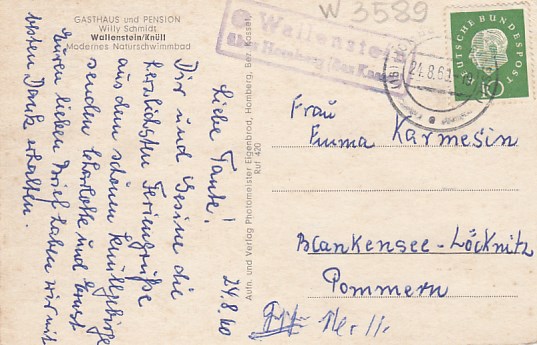 GASTHAUS und PENSION
Willy Schmidt
Wallenstein/Knüll
Modernes Naturschwimmbad
24.8.60
Liebe Tante!
Dir und Gesine die
herzlichsten Feriengrüße
aus dem schönen Knüllgebirge
senden Charlotte und Ernst
Euren lieben Brief haben wir mit
besten Dank erhalten.
Aufn. und Verlag Photomeister Eigenbrod, Homberg, Bez. Kassel
Ruf 420
W 3589
Wallenstein
über Homberg (Bez Kassel)
24.8.60
DEUTSCHE BUNDESPOST
10
Frau
Emma Karmesin
Blankensee-Löcknitz
Pommern